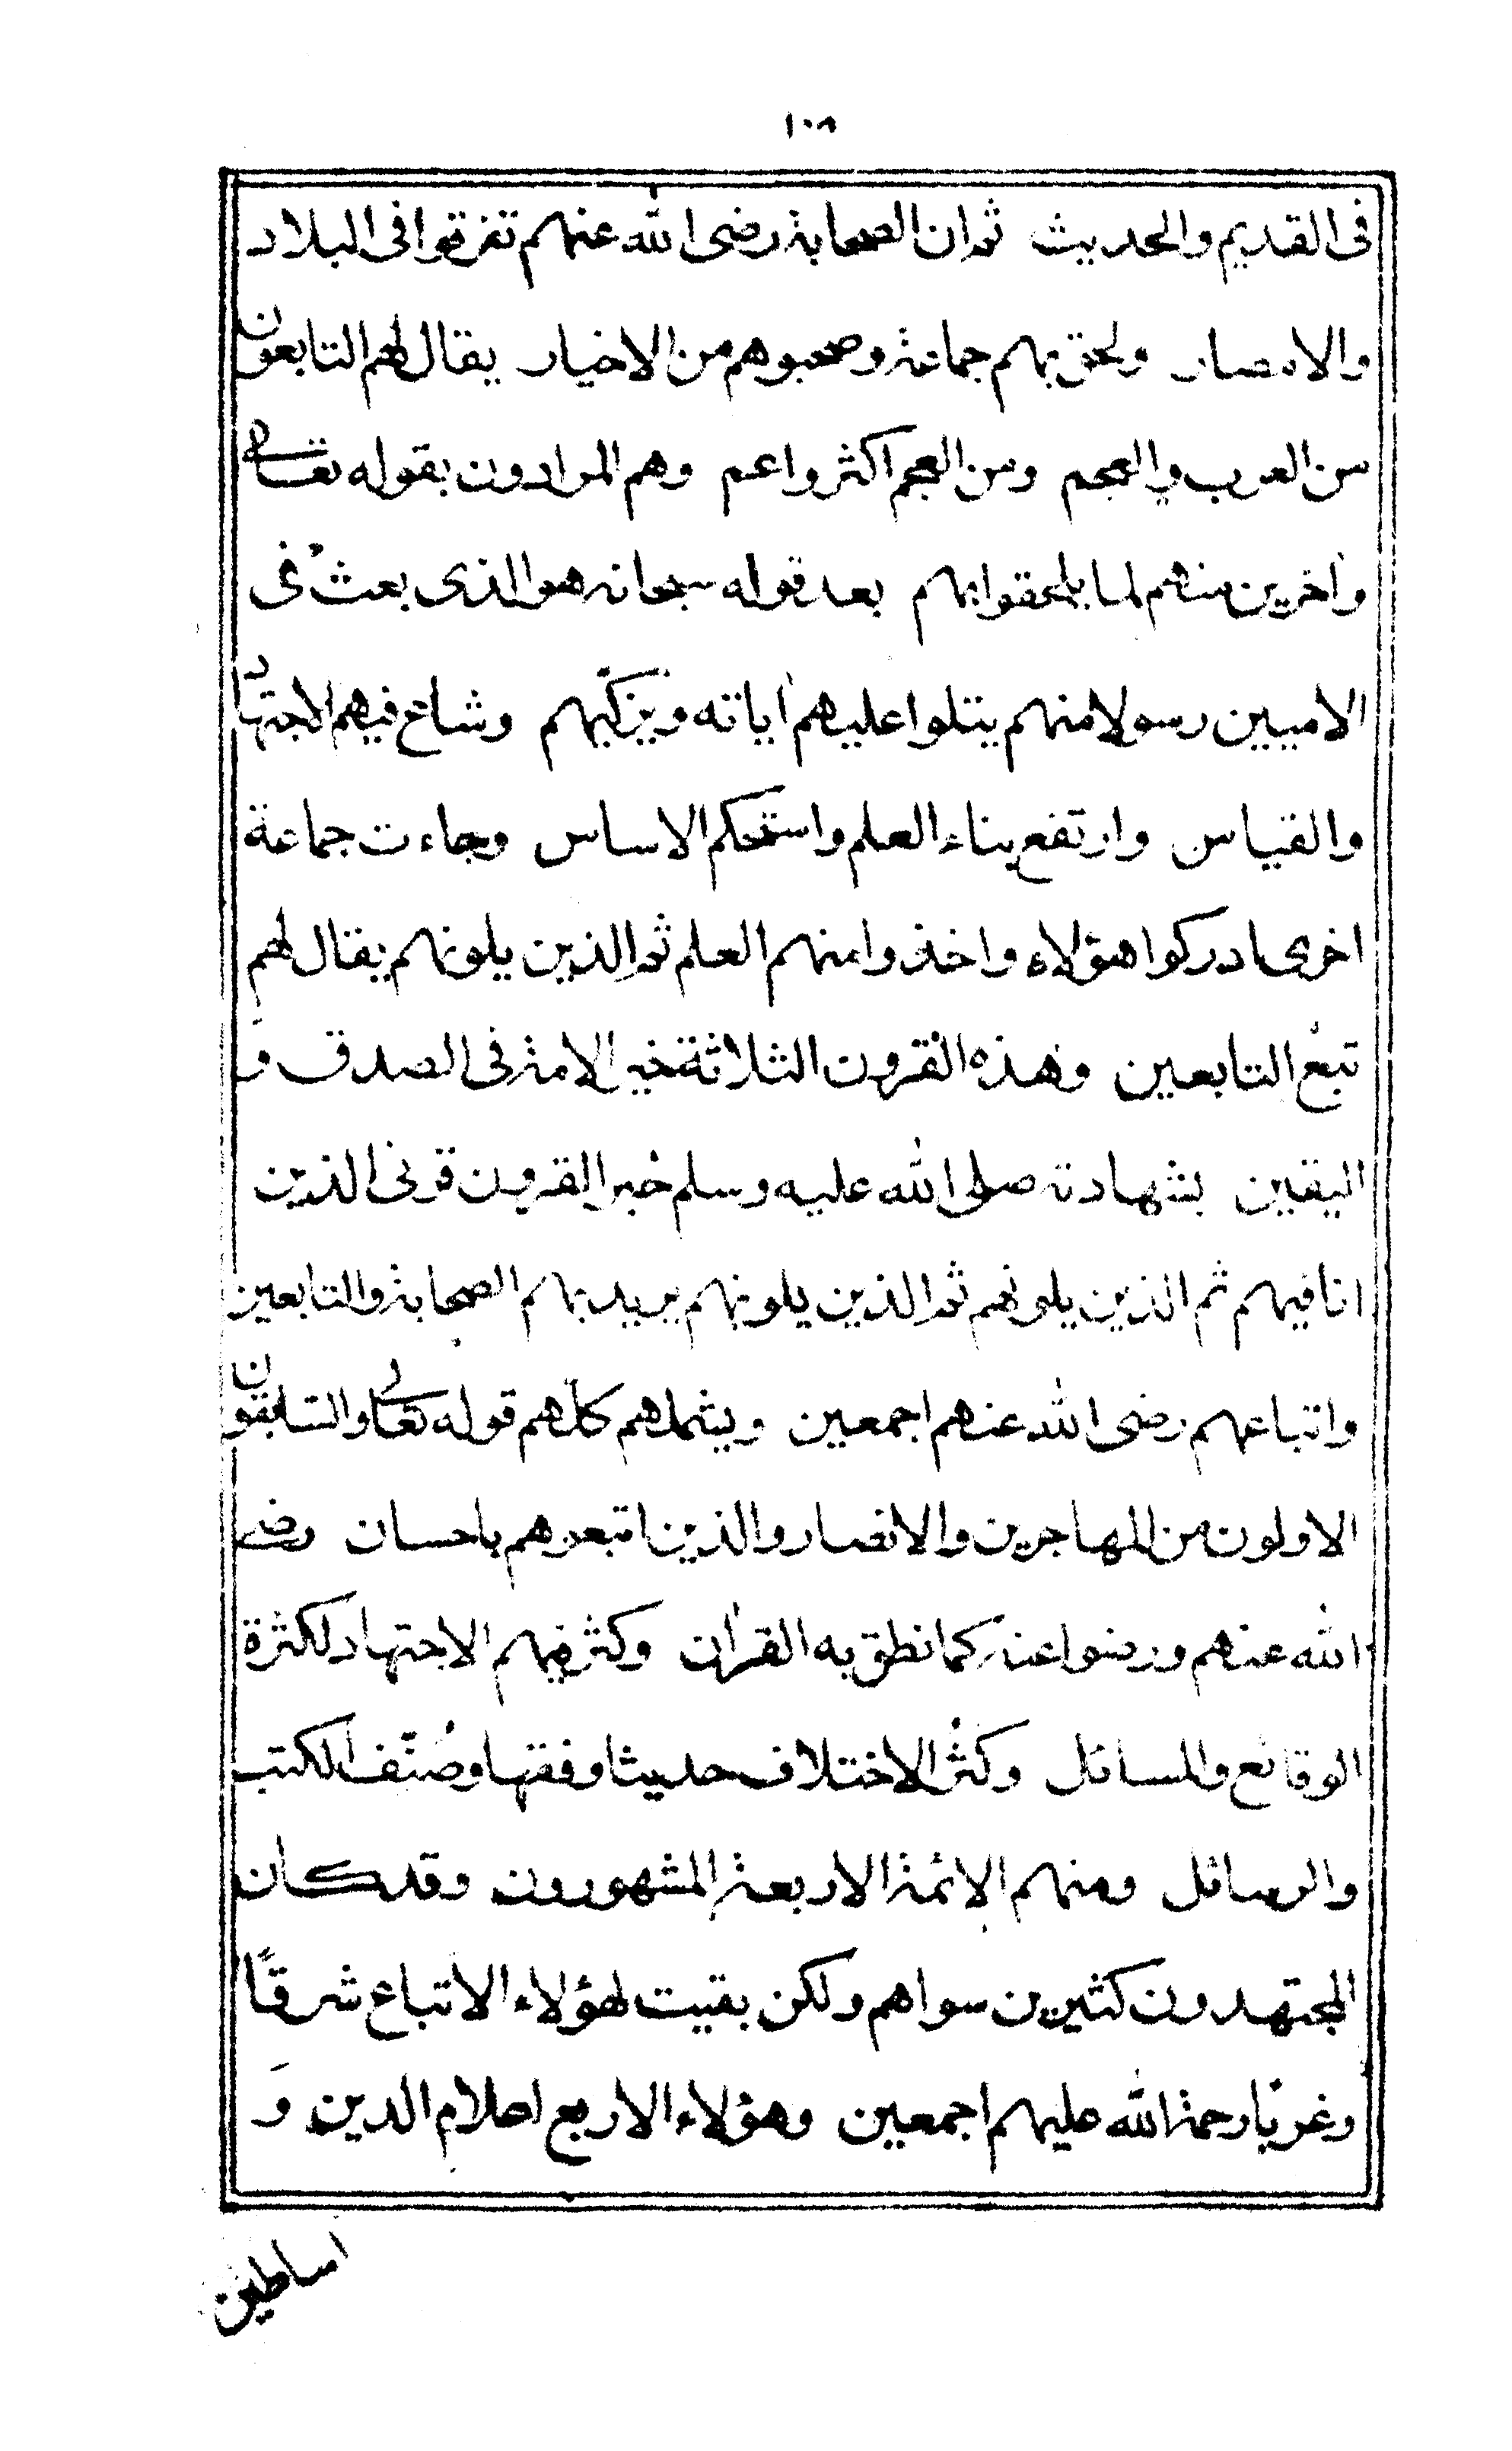 ١٠٨
فى القديم والحديث ثم ان الصحابة رضى الله عنهم تفرقوا فى البلاد
والامصار ولحق بهم جماعة وصحبوهم من الاخيار يقال لهم التابعون
من العرب والعجم ومن العجم اكثر واعم وهم المرادون بقوله تعالى
وآخرين منهم لما يلحقوا بهم بعد قوله سبحانه هو الذى بعث فى
الاميين رسولا منهم يتلوا عليهم اٰياته ويزكّيهم وشاع فيهم الاجتهاد
والقياس وارتفع بناء العلم واستحكم الاساس وجاءت جماعة
اخرى ادركوا هؤلاء واخذوا منهم العلم ثم الذين يلونهم يقال لهم
تبع التابعين وهذه القرون الثلاثة خير الامة فى الصدق وَ
اليقين بشهادته صلى الله عليه وسلم خير القرون قرنى الذين
انا فيهم ثم الذين يلونهم ثم الذين يلونهم يريد بهم الصحابة والتابعين
واتباعهم رضى الله عنهم اجمعين ويشملهم كلّهم قوله تعالى والسابقون
الاولون من المهاجرين والانصار والذين اتبعوهم باحسان رضى
الله عنهم ورضوا عنه كما نطق به القراٰن وكثر فيهم الاجتهاد لكثرة
الوقائع والمسائل وكثُر الاختلاف حديثا وفقها وصُنّف الكتب
والرسائل ومنهم الائمة الاربعة المشهورون وقد كان
المجتهدون كثيرين سواهم ولكن بقيت لهؤلاء الاتباع شرقًا
وغربًا رحمة الله عليهم اجمعين وهؤلاء الاربع اعلام الدين وَ
اساطين